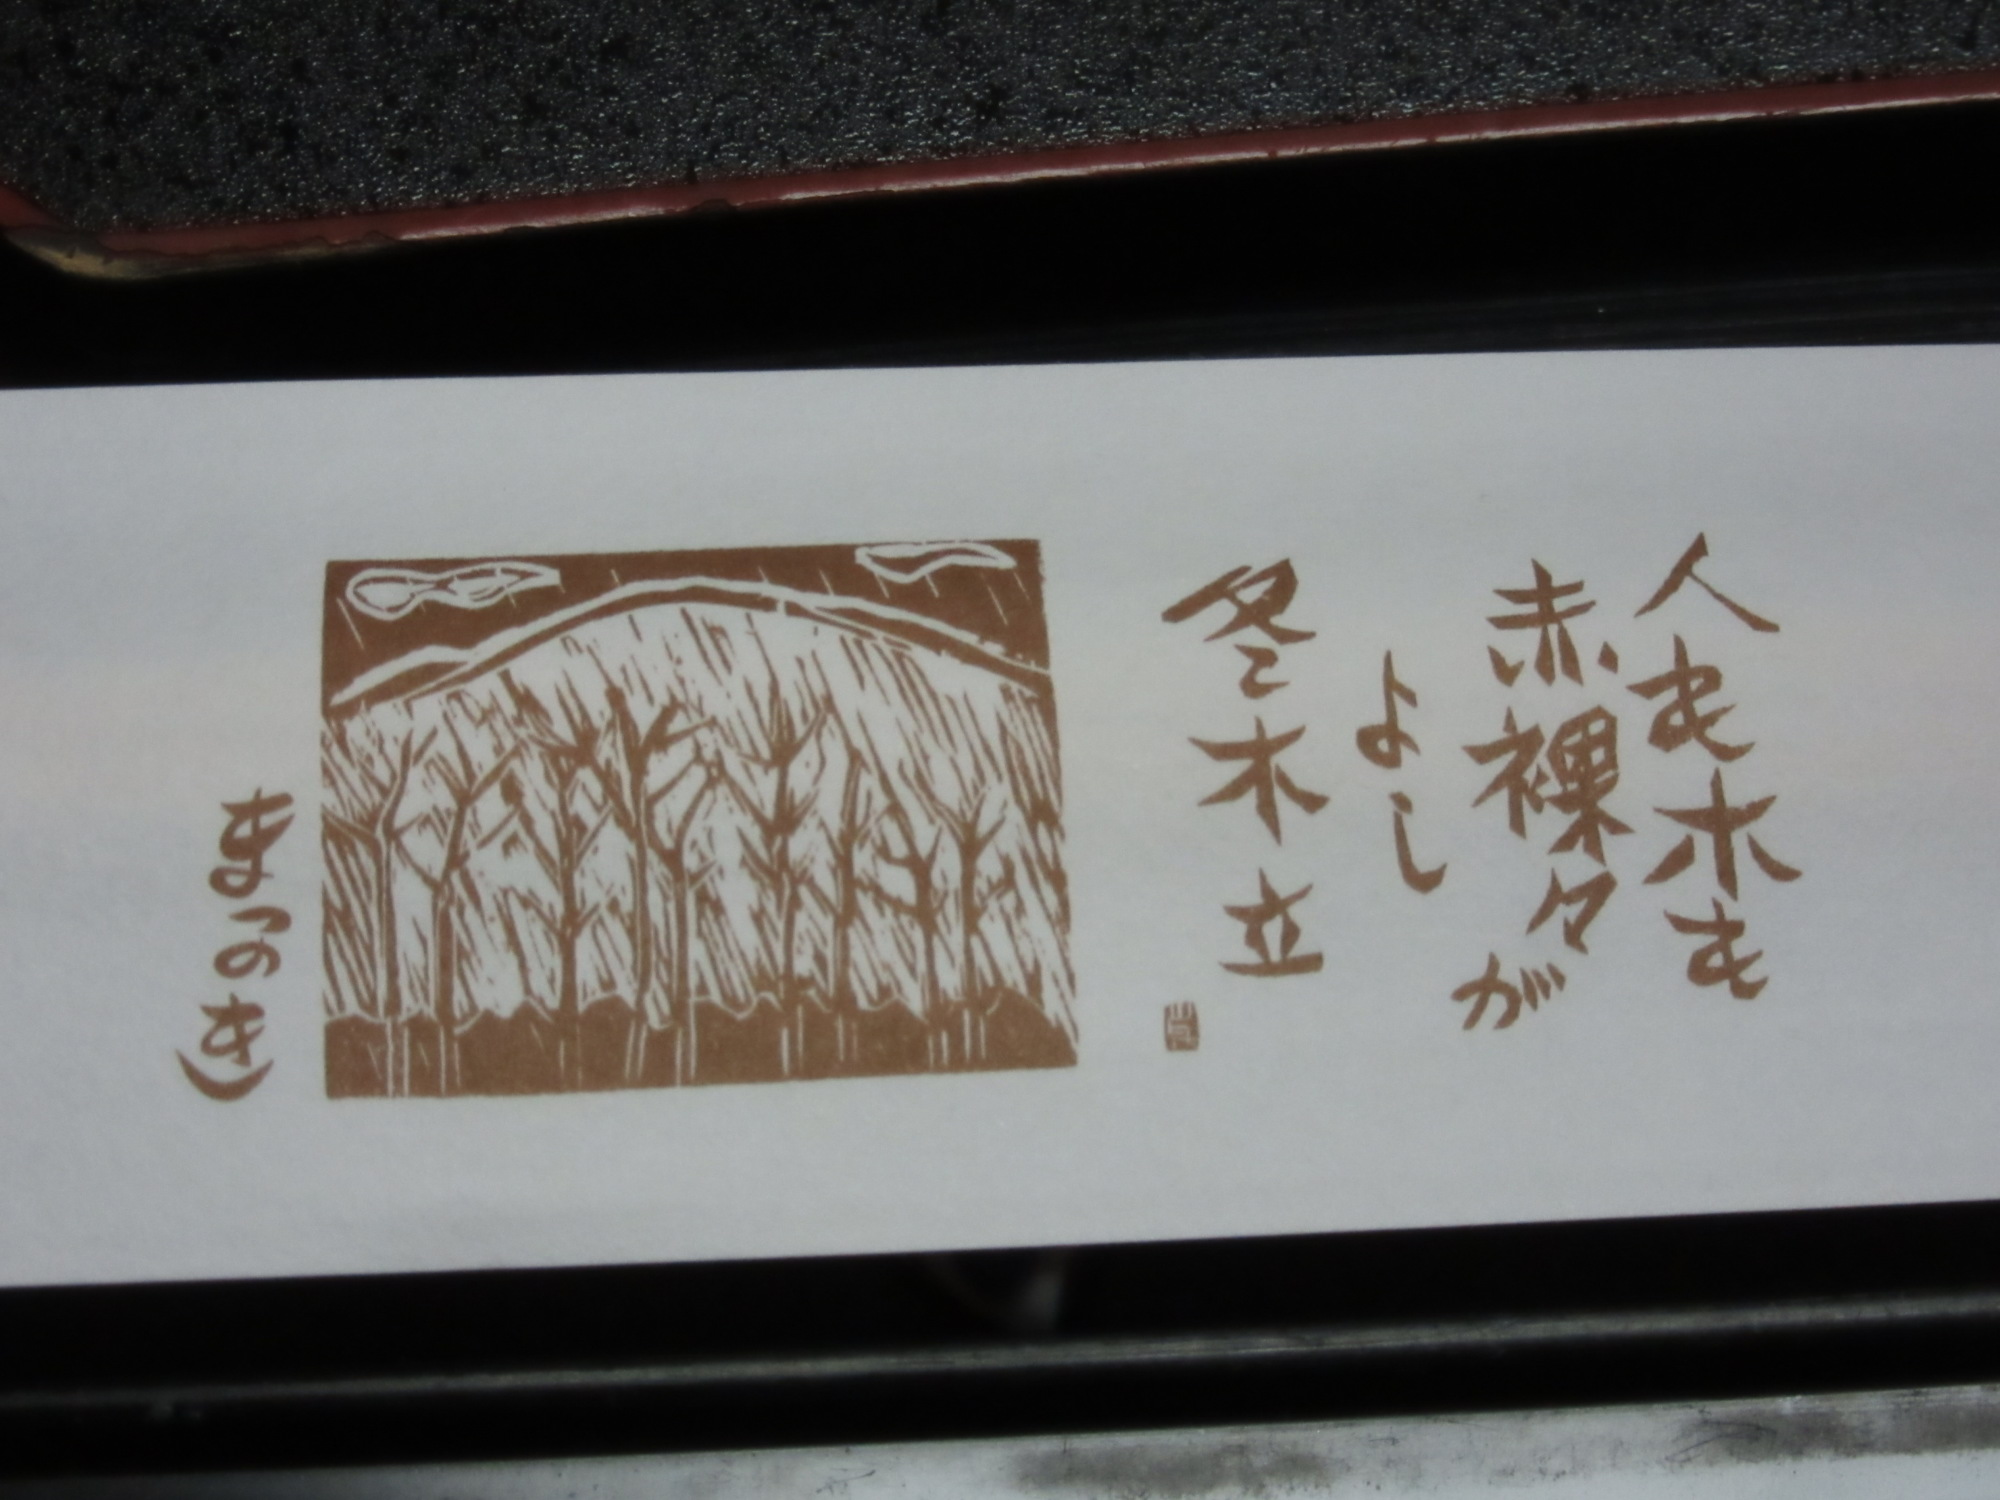 人も木も
赤裸々が
よし
冬木立
まつのき